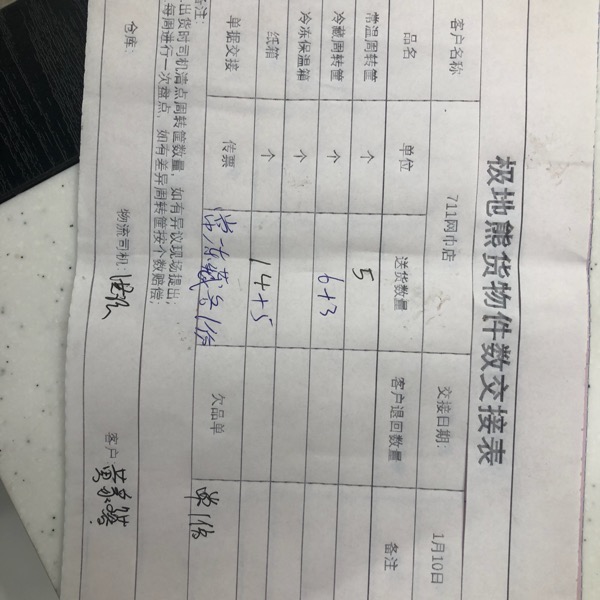 极地熊货物件数交接表
客户名称 711网巾店 交接日期: 1月10日
品名 单位 送货数量 客户退回数量 备注
常温周转筐 个 5
冷藏周转筐 个 6+3
冷冻保温箱 个
纸箱 个 14+5
单据交接 传票 常冷藏各1份 欠品单 单1份
备注:
出货时司机清点周转筐数量，如有异议现场提出;
每周进行一次盘点，如有差异周转筐按个数赔偿;
仓库: 物流司机: 客户